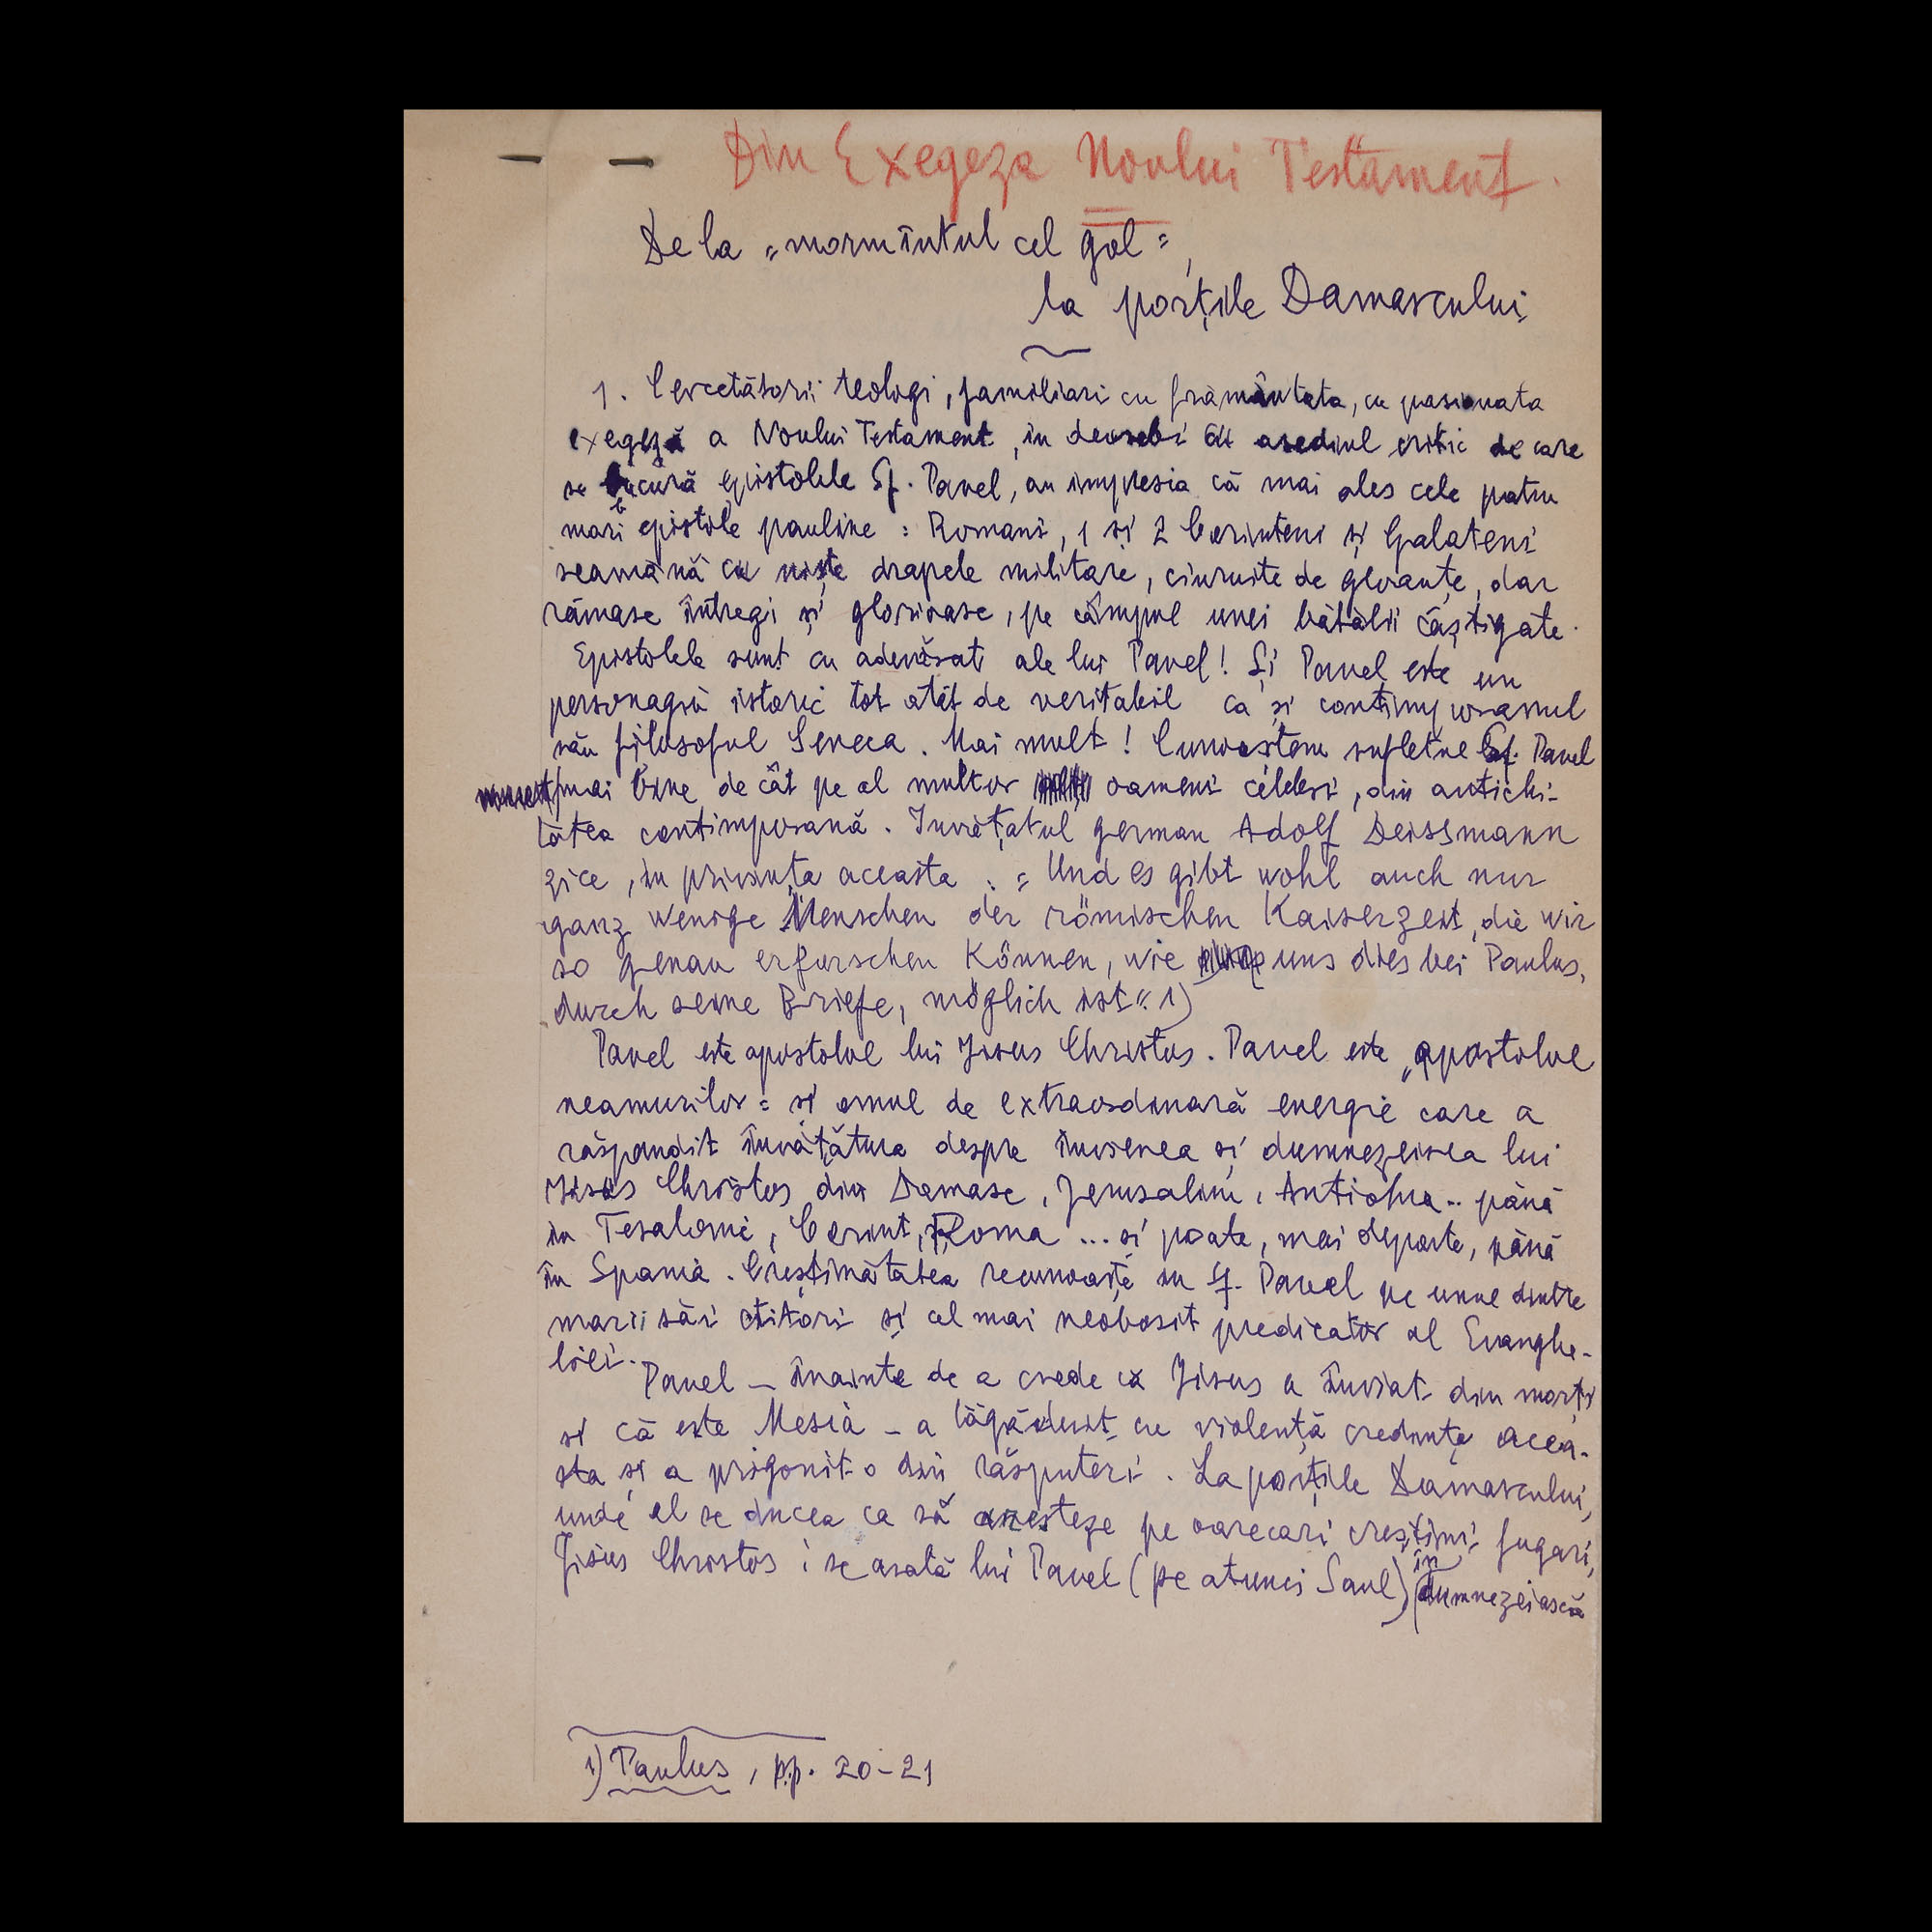 Din Exegeza Noului Testament.
De la „mormîntul cel gol",
la porțile Damascului
1. Cercetătorii teologi, familiari cu frământata, cu pasionata
exegeză a Noului Testament, in deosebi cu asediul critic de care
se bucură epistolele Sf. Pavel, au impresia că mai ales cele patru
mari epistole pauline: Romani, 1 si 2 Corinteni și Galateni
seamănă cu niște drapele militare, ciuruite de gloanțe, dar
rămase întregi și glorioase, pe câmpul unei bătălii câștigate.
Epistolele sunt cu adevărat ale lui Pavel! Și Pavel este un
personagiu istoric tot atât de veritabil ca și contimporanul
său filosoful Seneca. Mai mult! Cunoaștem sufletul Sf. Pavel
mai bine de cât pe al multor oameni celebri, din antichi-
tatea contimporană. Invățatul german Adolf Deissmann
zice, in privința aceasta: „Und es gibt wohl auch nur
ganz wenige Menschen der römischen Kaiserzeit, die wir
so genau erforschen können, wie uns dies bei Paulus,
durch seine Briefe, möglich ist". 1)
Pavel este apostolul lui Jisus Christos. Pavel este „apostolul
neamurilor" și omul de extraordinară energie care a
răspandit învățătura despre învierea și dumnezeirea lui
Jisus Christos din Damasc, Jerusalim, Antiohia.. până
in Tesalonic, Corint, Roma ... și poate, mai departe, până
în Spania. Creștinătatea recunoaște in Sf. Pavel pe unul dintre
marii săi ctitori și cel mai neobosit predicator al Evanghe-
liei.
Pavel – înainte de a crede că Jisus a înviat din morți
si că este Mesia – a tăgăduit cu violență credința acea-
sta și a prigonit-o din răsputeri. La porțile Damascului,
unde el se ducea ca să aresteze pe oarecari creștini fugari,
Jisus Christos i se arată lui Pavel (pe atunci Saul) in dumnezeiască
1) Paulus, pp. 20-21